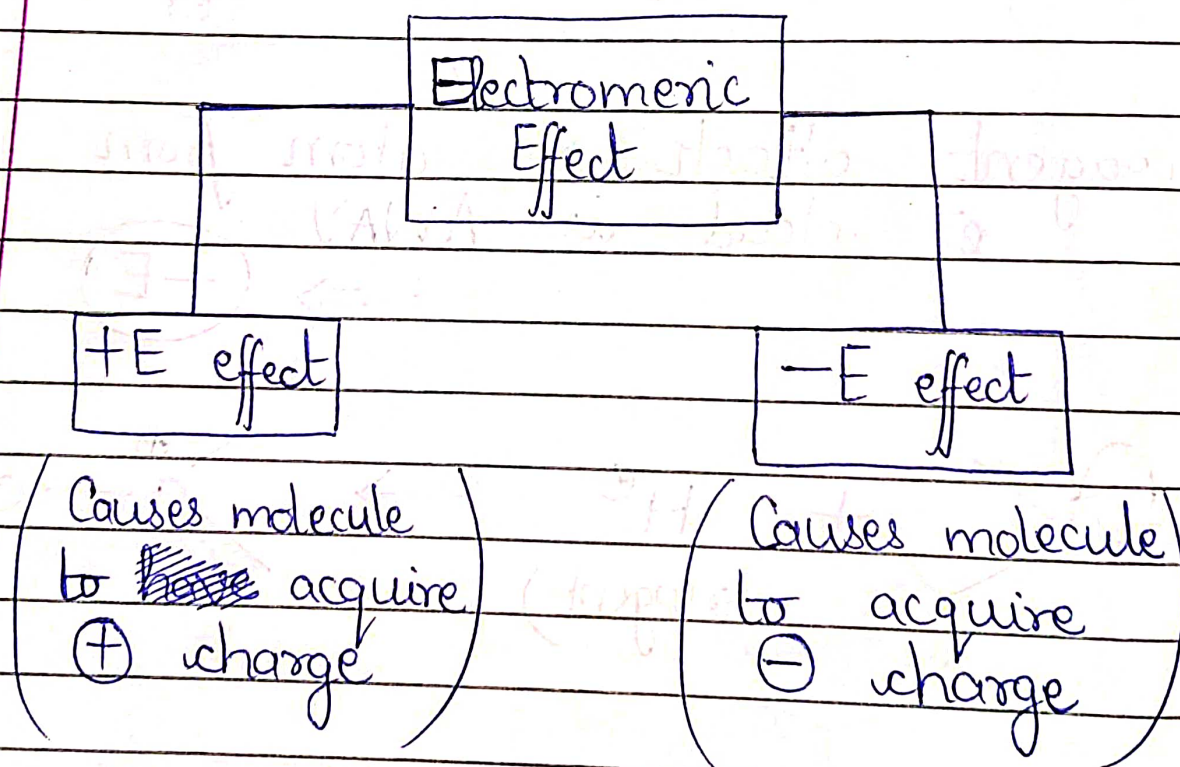 Electromeric
Effect
+E effect
-E effect
Causes molecule
to acquire
⊕ charge
Causes molecule
to acquire
⊖ charge